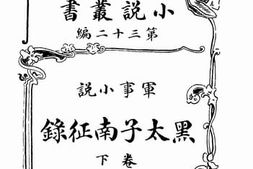 小說叢書
第三十二編
軍事小說
黑太子南征錄
卷下